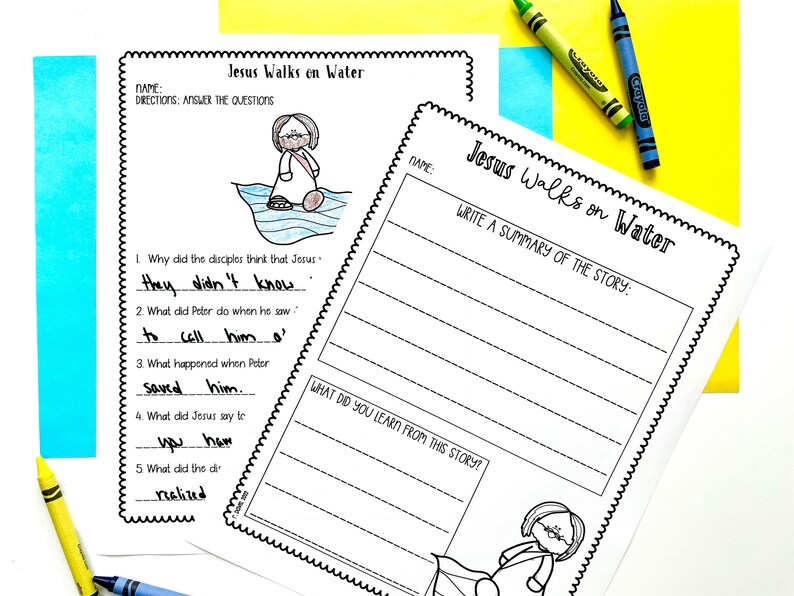 Jesus Walks on Water
NAME:
DIRECTIONS: ANSWER THE QUESTIONS
1. Why did the disciples think that Jesus
they didn't know
2. What did Peter do when he saw
to call him
3. What happened when Peter
saved him.
4. What did Jesus say to
you
5. What did the
realized
Jesus Walks on Water
NAME:
WRITE A SUMMARY OF THE STORY:
WHAT DID YOU LEARN FROM THIS STORY?
Crayola
Crayola